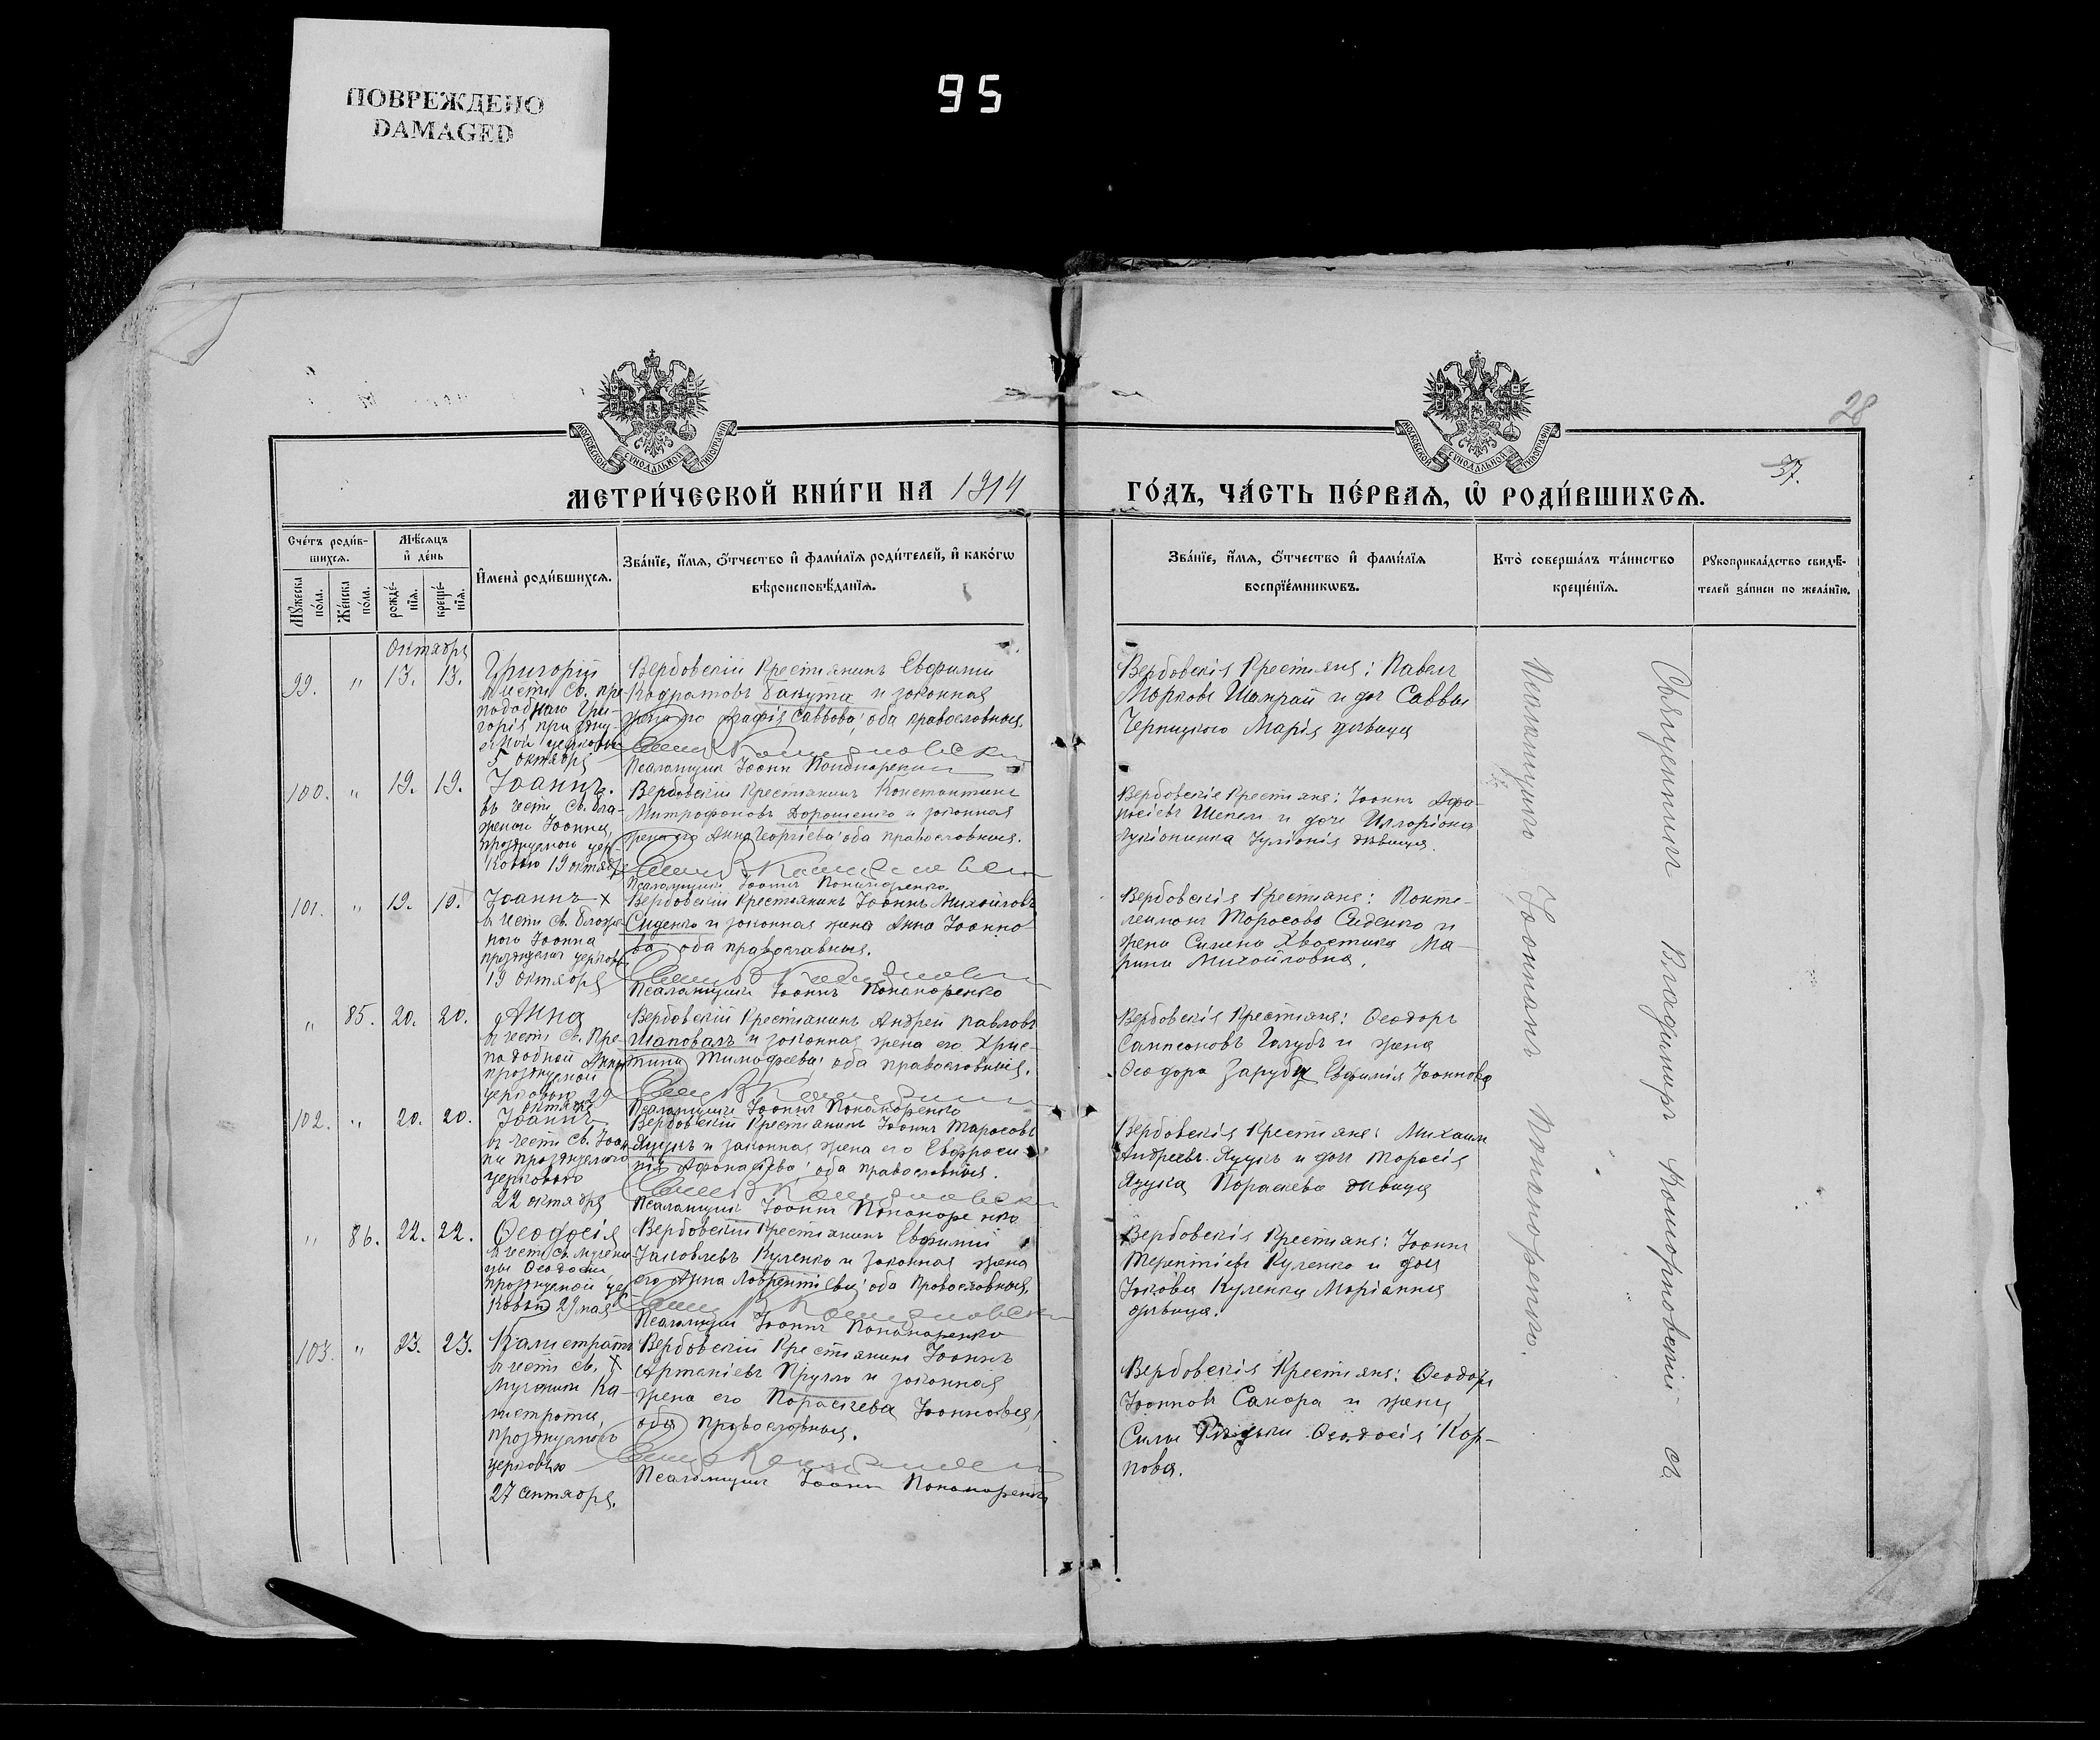 ПОВРЕЖДЕНО
DAMAGED
95
28
37.
МОСКОВСКОЙ СУНОДАЛЬНОЙ ТИПОГРАФІИ
МОСКОВСКОЙ СУНОДАЛЬНОЙ ТИПОГРАФІИ
МЕТРИ́ЧЕСКОЙ КНИ́ГИ НА 1914
ГО́ДЪ, ЧА́СТЬ ПЕ́РВАѦ, Ѡ҆ РОДИ́ВШИХСѦ.
Сче́тъ роди́в-
шихсѧ.
Мꙋжеска по́ла.
Же́нска по́ла.
Мѣ́сѧцъ
и҆ де́нь
рожде́-
нїѧ.
креще́-
нїѧ.
И҆мена̀ роди́вшихсѧ.
Зва́нїе, и҆́мѧ, ѻ҆́тчество и҆ фами́лїѧ роди́телей, и҆ како́гѡ
вѣроисповѣ́данїѧ.
Зва́нїе, и҆́мѧ, ѻ҆́тчество и҆ фами́лїѧ
воспрїе́мникѡвъ.
Кто̀ соверша́лъ та́инство
креще́нїѧ.
Рꙋкоприкла́дство свидѣ́-
телей за́писи по жела́нїю.
Октября
99. " 13. 13.
Григорій
въ честь Св. пре-
подобнаго Гри-
горія
церковью
5 октября
Вербовскій Крестьянинъ Евфимій
Кодратовъ Бакута и законная
жена его Саввова, оба православныя.
Псаломщикъ Іоаннъ Понамаренко
Вербовскія Крестьяне: Павелъ
Марковъ Шамрай и дочь Саввы
Черницкого Марія дѣвица
100. " 19. 19.
Іоаннъ.
въ честь Св. бла-
женаго Іоанна,
празднуемого цер-
ковью 19 октября
Вербовскій Крестьянинъ Константинъ
Митрофановъ Дорошенко и законная
жена его Анна Георгіева оба православныя.
Псаломщикъ Іоаннъ Понамаренко
Вербовскіе Крестьяне: Іоаннъ Афа-
насіевъ Шепель и дочь Илларіона
Іуліанія дѣвица.
101. " 19. 19.
Іоаннъ +
въ честь Св. блаже-
ного Іоанна
празднуемого церковью
19 октября
Вербовскій Крестьянинъ Іоаннъ Михайловъ
Сиденко и законная жена Анна Іоанно-
ва оба православныя.
Псаломщикъ Іоаннъ Понамаренко
Вербовскія Крестьяне: Панте-
леимонъ Тарасовъ Сиденко и
жена Симена Хвостика Ма-
рина Михайловна.
" 85. 20. 20.
Анна
въ честь Св. Пре-
подобной Анны
празднуемой
церковью 29
октября
Вербовскій Крестьянинъ Андрей Павловъ
Шаповалъ и законная жена его Хрис-
тина Тимофеева оба православныя.
Псаломщикъ Іоаннъ Понамаренко
Вербовскія Крестьяне: Ѳеодоръ
Сампсоновъ Голубъ и жена
Ѳеодора Зарубы Евфимія Іоаннова
102. " 20. 20.
Іоаннъ
въ честь Св. Іоан-
на празднуемого
церковью
22 октября
Вербовскій Крестьянинъ Іоаннъ Тарасовъ
Яцукъ и законная жена его Евфроси-
нія Афонасіева, оба православныя.
Псаломщикъ Іоаннъ Понамаренко
Вербовскія Крестьяне: Михаилъ
Андреевъ Яцукъ и дочь Тарасія
Яцука Параскева дѣвица
" 86. 22. 22.
Ѳеодосія
въ честь св. мучени-
цы Ѳеодосіи
празднуемой цер-
ковью 29 мая
Вербовскій Крестьянинъ Евфимій
Іаковлевъ Куленко и законная жена
его Анна Лаврентіева оба Православныя.
Псаломщикъ Іоаннъ Понамаренко
Вербовскія Крестьяне: Іоаннъ
Терентіевъ Куленко и дочь
Іакова Куленка Маріанна
дѣвица.
103. " 23. 23.
Калистратъ
въ честь св. +
Мученика Ка-
листрата,
празднуемого
церковью
27 сентября.
Вербовскій Крестьянинъ Іоаннъ
и законная
жена его Параскева Іоаннова,
оба Православныя.
Псаломщикъ Іоаннъ Понамаренко
Вербовскія Крестьяне: Ѳеодоръ
Іоанновъ Самара и жена
Силы Ѳеодосія Кар-
пова.
Священникъ Владимиръ съ
Псаломщикомъ Іоанномъ Понамаренко.